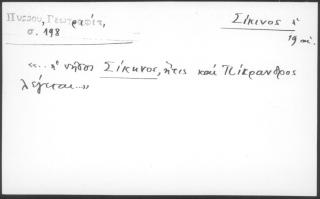 Πύρρου, Γεωγραφία,
σ. 198
Σίκινος ἡ
19 αἰ.
«... ἡ νῆσος Σίκηνος, ἥτις καὶ Πίκρανδρος
λέγεται...»